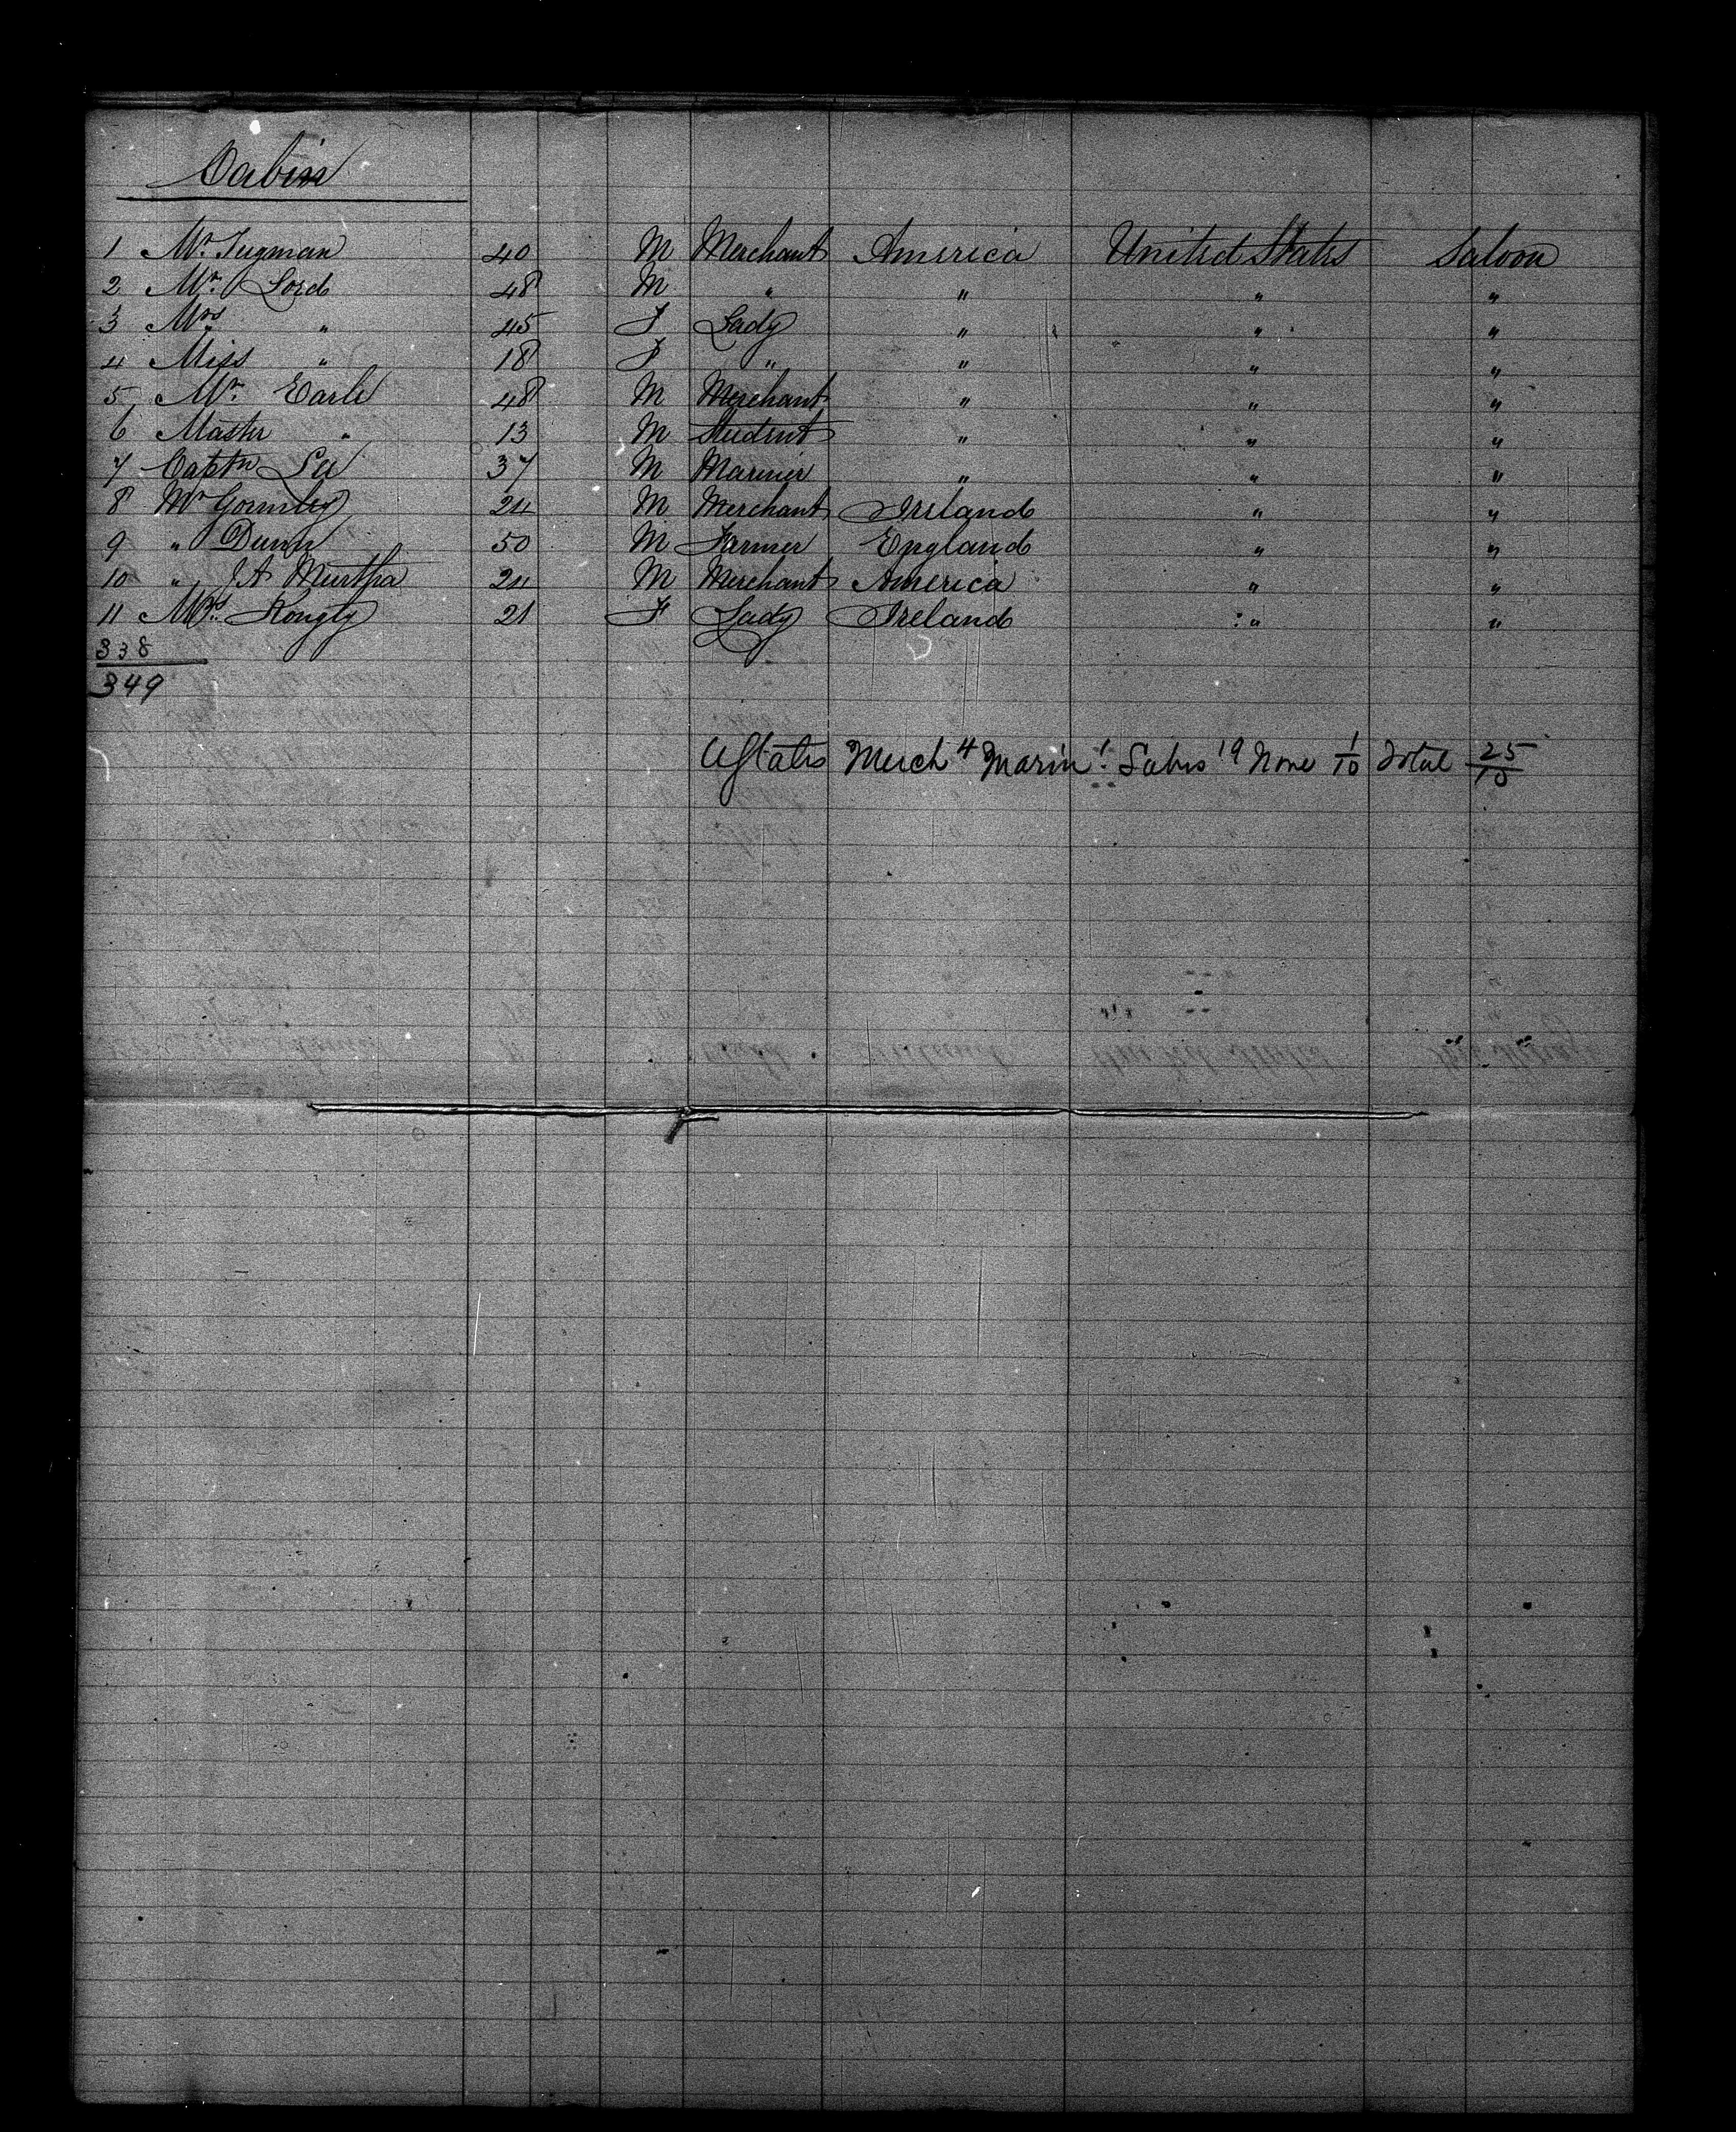 Cabin
1 Mr. Tugman 40 M Merchant America United States Saloon
2 Mr. Lord 48 M " " " "
3 Mrs " 45 F Lady " " "
4 Miss " 18 F " " " "
5 Mr. Earle 48 M Merchant " " "
6 Master " 13 M Student " " "
7 Captn Lee 37 M Mariner " " "
8 Mr Gormley 24 M Merchant Ireland " "
9 " Dunn 50 M Farmer England " "
10 " J A Murtha 24 M Merchant America " "
11 Mrs. 21 F Lady Ireland " "
338
349
UStates Merch 4 Marin 1 Labrs 19 None 1/10 Total 25/10